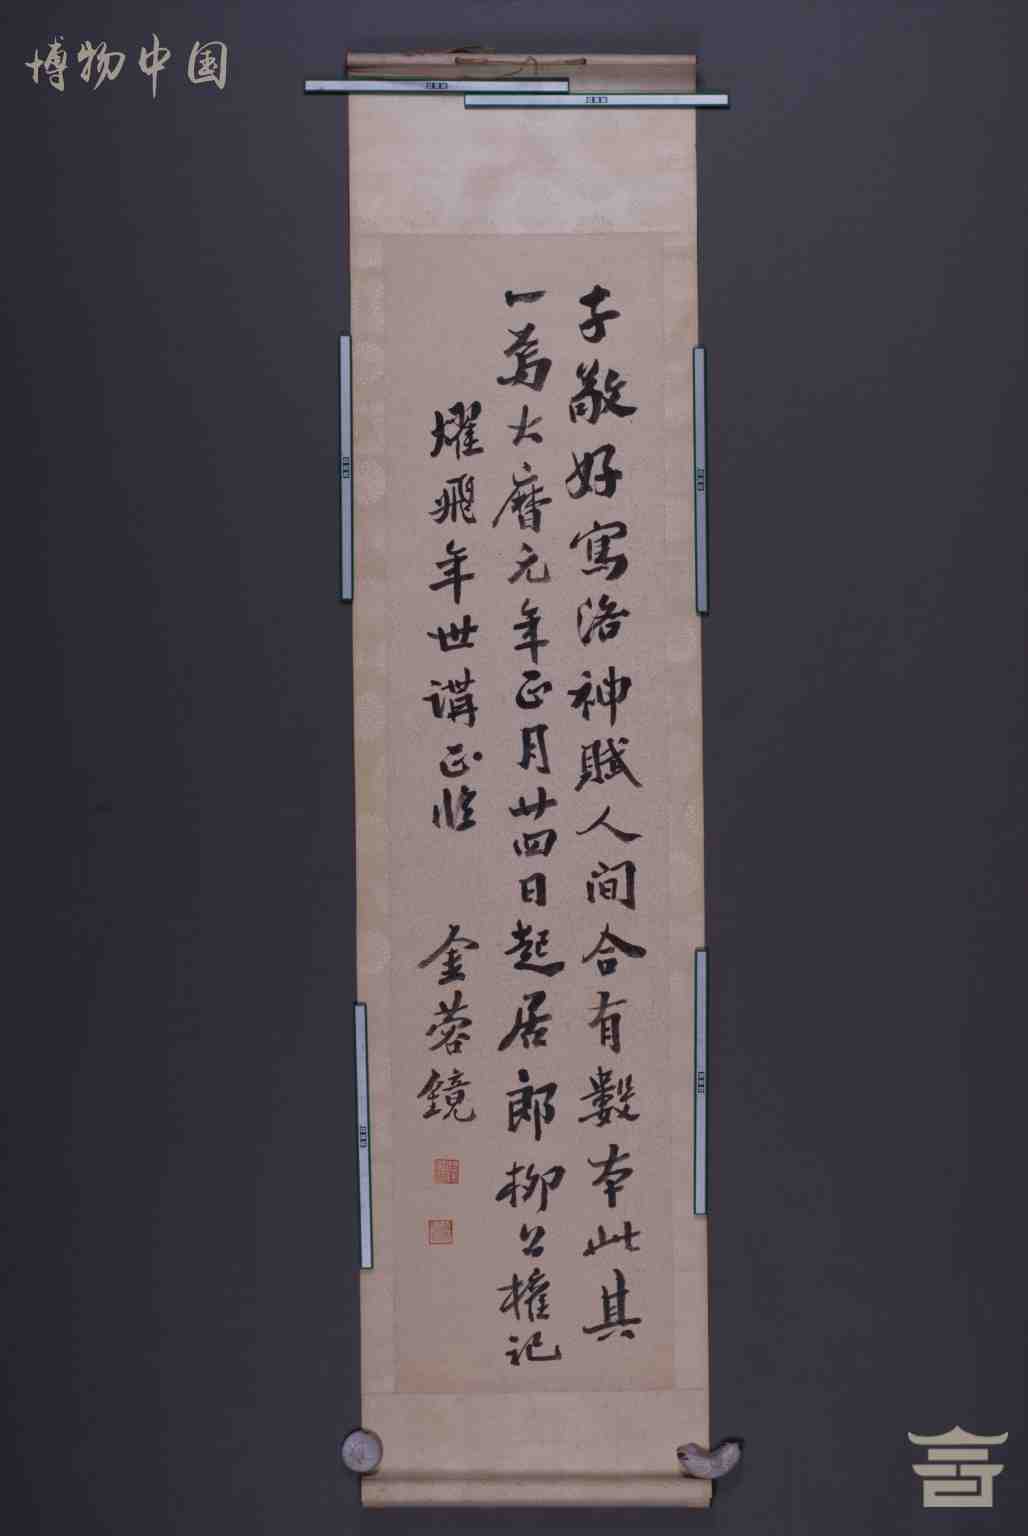 博物中国
子敬好寫洛神賦人间合有數本此其
一焉大曆元年正月廿四日起居郎柳公權记
燿飛年世講正临
金蓉鏡